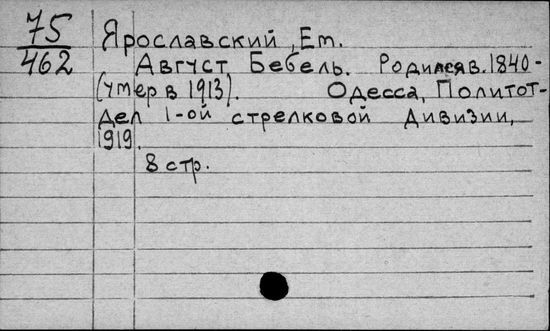 75
462
Ярославский, Ем.
Август Бебель. Родился в. 1840-
(умер в 1913). Одесса, Политот-
дел 1-ой стрелковой Дивизии,
1919.
8 стр.